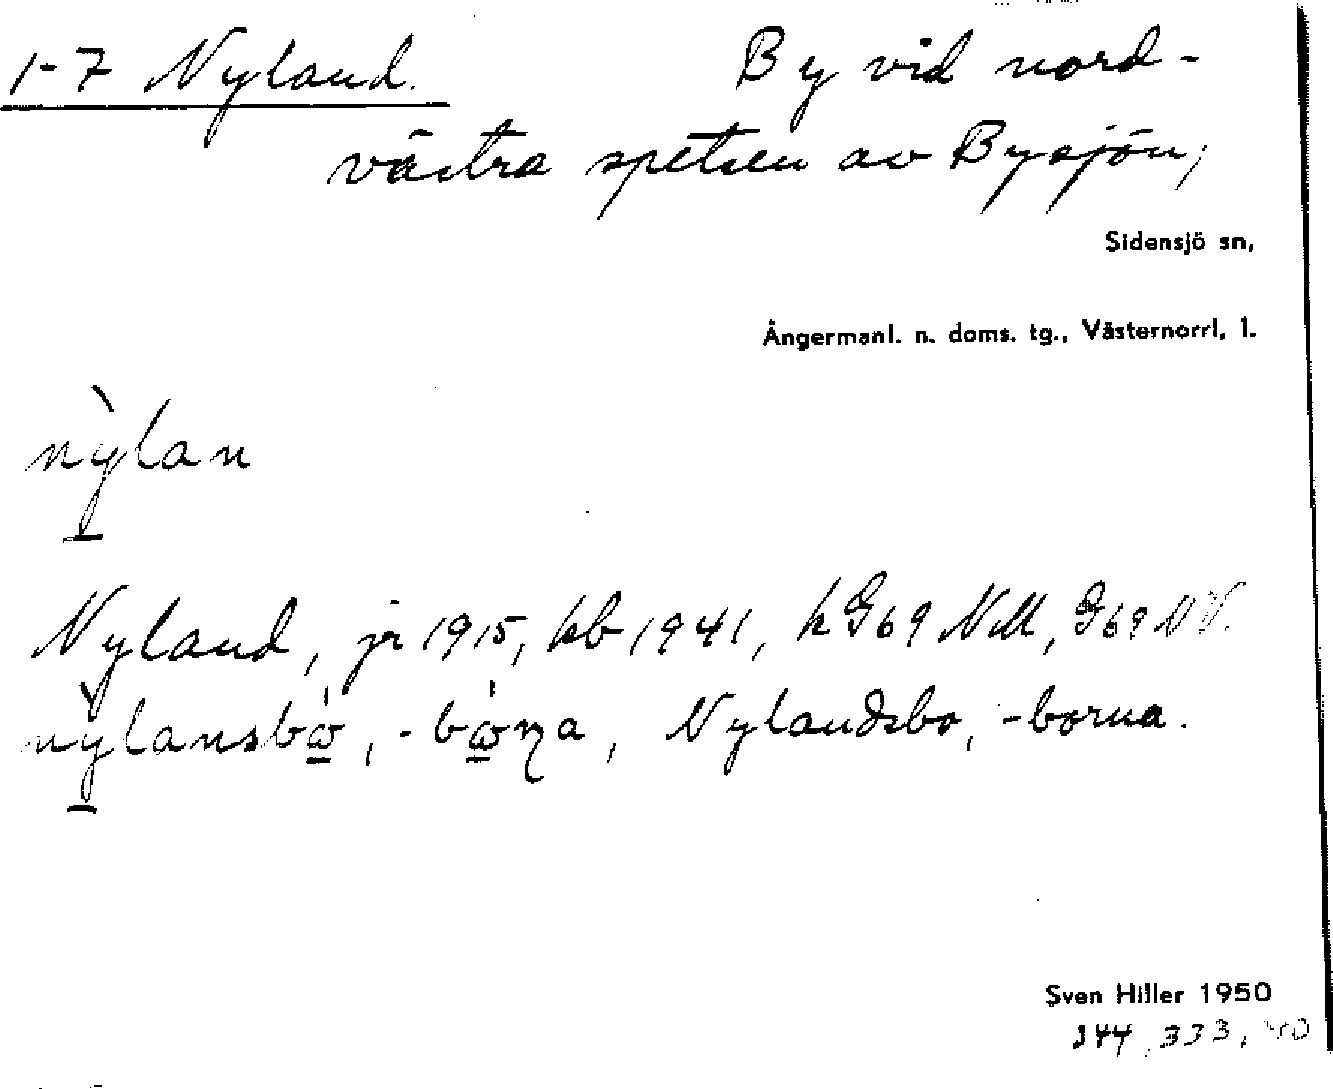 1-7 Nyland. By vid nord-
västra spetsen av Bysjön,
Sidensjö sn,
Ångermanl. n. doms. tg., Västernorrl. l.
nỳlan
Nyland, jr 1915, kb 1941, k G69 NM, G69 NV.
nỳlansbω, -bωɳa, Nylandsbo, -borna.
Sven Hiller 1950
333,